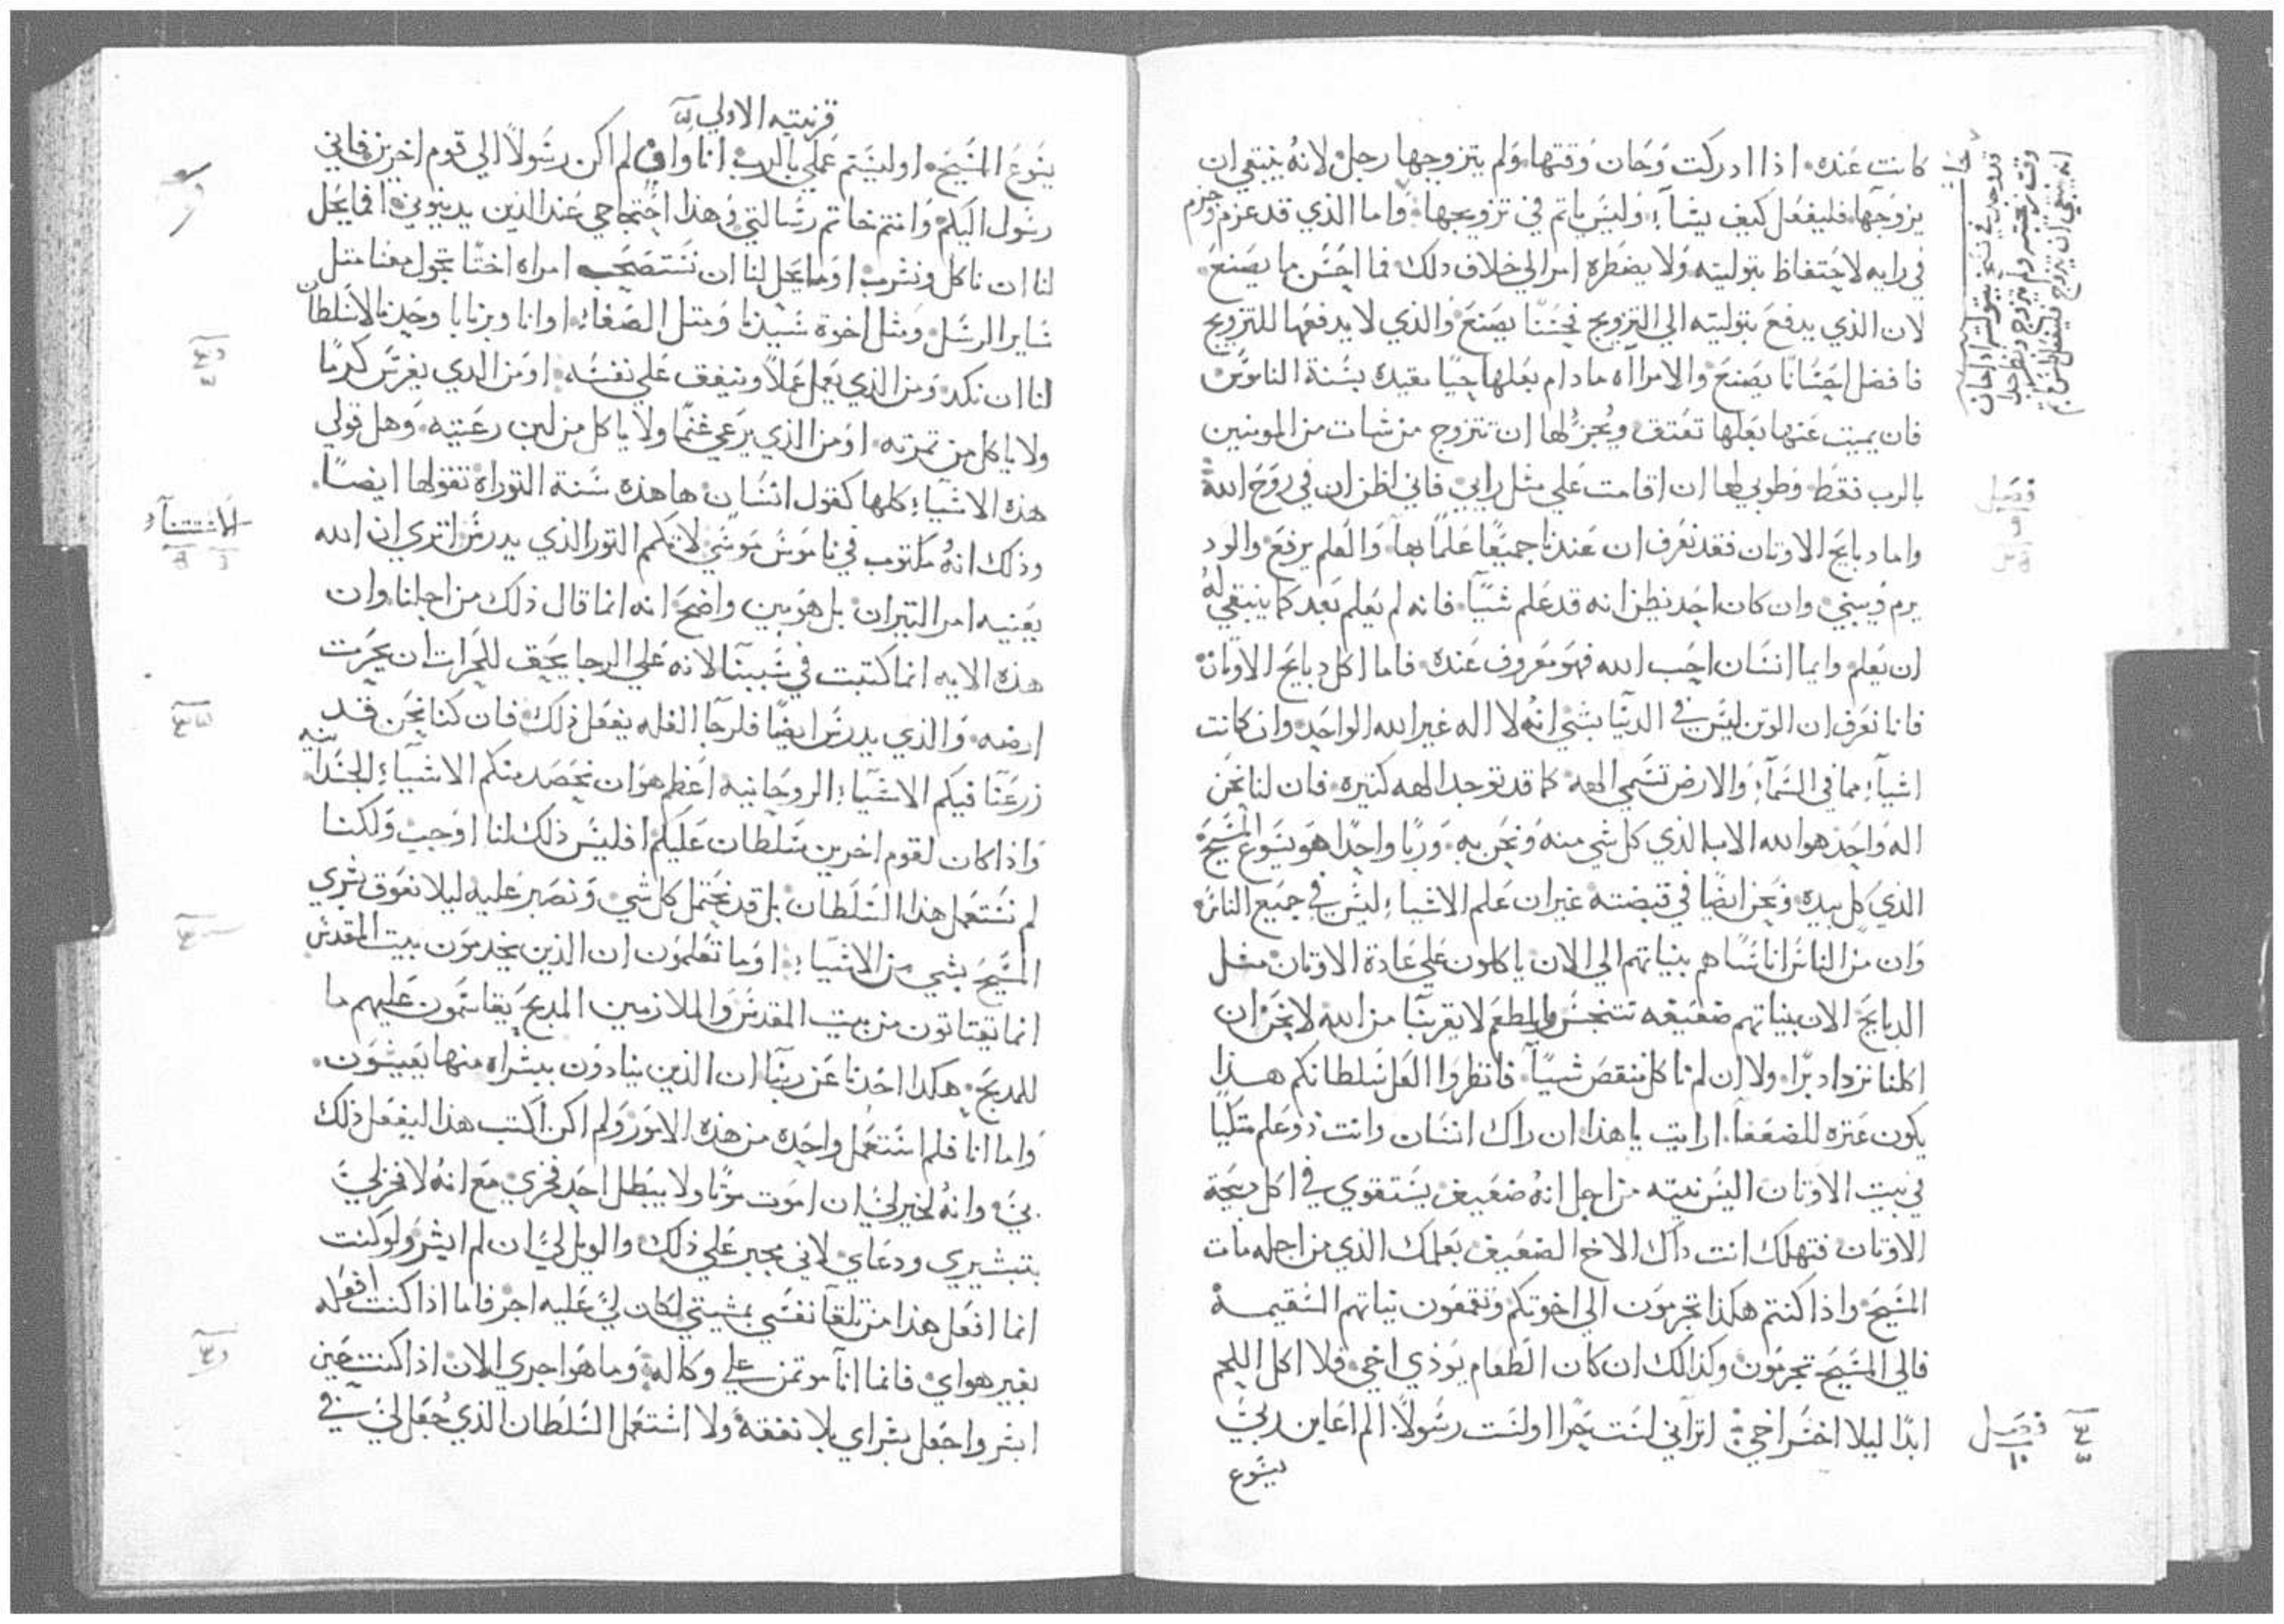 كانت عنده. اذا ادركت وحان وقتها ولم يتزوجها رجل لانه ينبغي ان
يزوجها. فليفعل كيف يشآء. وليس ياتم في تزويجها. واما الذي قد عزم وجزم
في رايه لاحتفاظ بتوليته ولا يضطره امر الي خلاف دلك فما احسن ما يصنع.
لان الذي يدفع بتوليته الي التزويج فحسنًا يصنع والذي لا يدفعها للتزويج
فافضل احسانًا يصنع والامراه ما دام بعلها حيًا مقيده بسنة الناموس
فان يميت عنها بعلها تعتق ويجز لها ان تتزوج من شات من المومنين
بالرب فقط وطوبي لها ان اقامت علي مثل رايي فاني اظن ان في روح الله
واما دبايح الاوتان فقد نعرف ان عندنا جميعًا علمًا بها. والعلم يرفع والود
يرم ويبني. وان كان احد نظن انه قد علم شيًا. فانه لم يعلم بعد كما ينبغي له
ان يعلم. وايما انسان احب الله فهو معروف عنده. فاما اكل دبايح الاوتان
فانا نعرف ان الوتن ليس في الدنيا بشي انه لا اله غير الله الواحد وان كانت
اشيآء مما في السمآء والارض تسمي الهه كما قد توجد الهه كتيره. فان لنا نحن
اله واحد هو الله الاب الذي كل شي منه ونحن به. وربًا واحدًا هو يسوع المسيح
الذي كل بيده ونحن ايضًا في قبضته غير ان علم الاشياء ليس في جميع الناس
وان من الناس اناسًا هم بنياتهم الي الان ياكلون علي عادة الاوتان مثل
الدبايح الان بنياتهم ضعيفه تتنجس والمطعم لا يقربنا من الله لا نحن ان
اكلنا نزداد برًا. ولا ان لم ناكل ننقص شيًا. فانظروا لعل سلطانكم هذا
يكون عتره للضعفا. ارايت يا هذا ان راك انسان وانت ذو علم متكيًا
في بيت الاوتان اليس نيته من اجل انه ضعيف يستقوي في اكل دبيحة
الاوتان فتهلك انت داك الاخ الضعيف بعلمك الذي من اجله مات
المسيح. واذا كنتم هكذا تجرمون الي اخوتكم وتقمعون نياتهم السقيمة
فالي المسيح تجرمون وكذالك ان كان الطعام يوذي اخي. فلا اكل اللحم
ابدًا ليلا اخسر اخي. اتراني لست حرًا او لست رسولًا. الم اعاين ربي
يسوع
فصل
فصل
١٠
قرنتيه الاولي
يسوع المسيح. او لستم عملي بالرب انا وان لم اكن رسولًا الي قوم اخرين فاني
رسول اليكم وانتم خاتم رسالتي وهذا احتجاجي عند الدين يدينوني. افما يحل
لنا ان ناكل ونشرب او ما يحل لنا ان نستصحب امراه اختًا تجول معنا مثل
ساير الرسل ومثل اخوة سيدنا ومثل الصفاء او انا وبرنابا وحدنا لا سلطان
لنا ان نكد ومن الذي يعمل عملًا وينفق علي نفسه. او من الدي يغرس كرمًا
ولا ياكل من تمرته. او من الذي يرعي غنمًا ولا ياكل من لبن رعيته. وهل قولي
هذه الاشياء كلها كقول انسان ها هذه سنة التوراة تقولها ايضًا.
وذلك انه مكتوب في ناموس موسي لا تكم التور الذي يدرس اتري ان الله
يعنيه امر التيران بل هو بين واضح انه انما قال ذلك من اجلنا وان
هذه الايه انما كتبت في سببنا لانه علي الرجا يحق للحرات ان يحرت
ارضه. والذي يدرس ايضًا فلرجا الغله يفعل ذلك. فان كنا نحن قد
زرعنا فيكم الاشياء الروحانيه اعظم هو ان نحصد منكم الاشياء الجسدانيه
واذا كان لقوم اخرين سلطان عليكم افليس ذلك لنا اوجب ولكننا
لم نستعمل هذا السلطان بل قد نحتمل كل شي ونصبر عليه ليلا نعوق بشري
المسيح بشي من الاشياء. او ما تعلمون ان الذين يخدمون بيت المقدس
انما يقتاتون من بيت المقدس والملازمين المدبح يقاسمون عليهم ما
للمدبح. هكدا احدنا عن ربنا ان الذين ينادون ببشراه منها يعيشون.
واما انا فلم استعمل واحده من هذه الامور ولم اكن اكتب هذا ليفعل ذلك
بي. وانه لخير لي ان اموت موتًا ولا يبطل احد فخري مع انه لا فخر لي
بتبشيري ودعاي. لاني مجبر علي ذلك والويل لي ان لم ابشر ولو كنت
انما افعل هذا من تلقآ نفسي بمشيتي لكان لي عليه اجر فاما اذا كنت افعله
بغير هواي فانما انا موتمن علي وكاله وما هو اجري الان اذا كنت حين
ابشر واجعل بشراي بلا نفقة ولا استعمل السلطان الذي جعل لي في
الاستتنآء